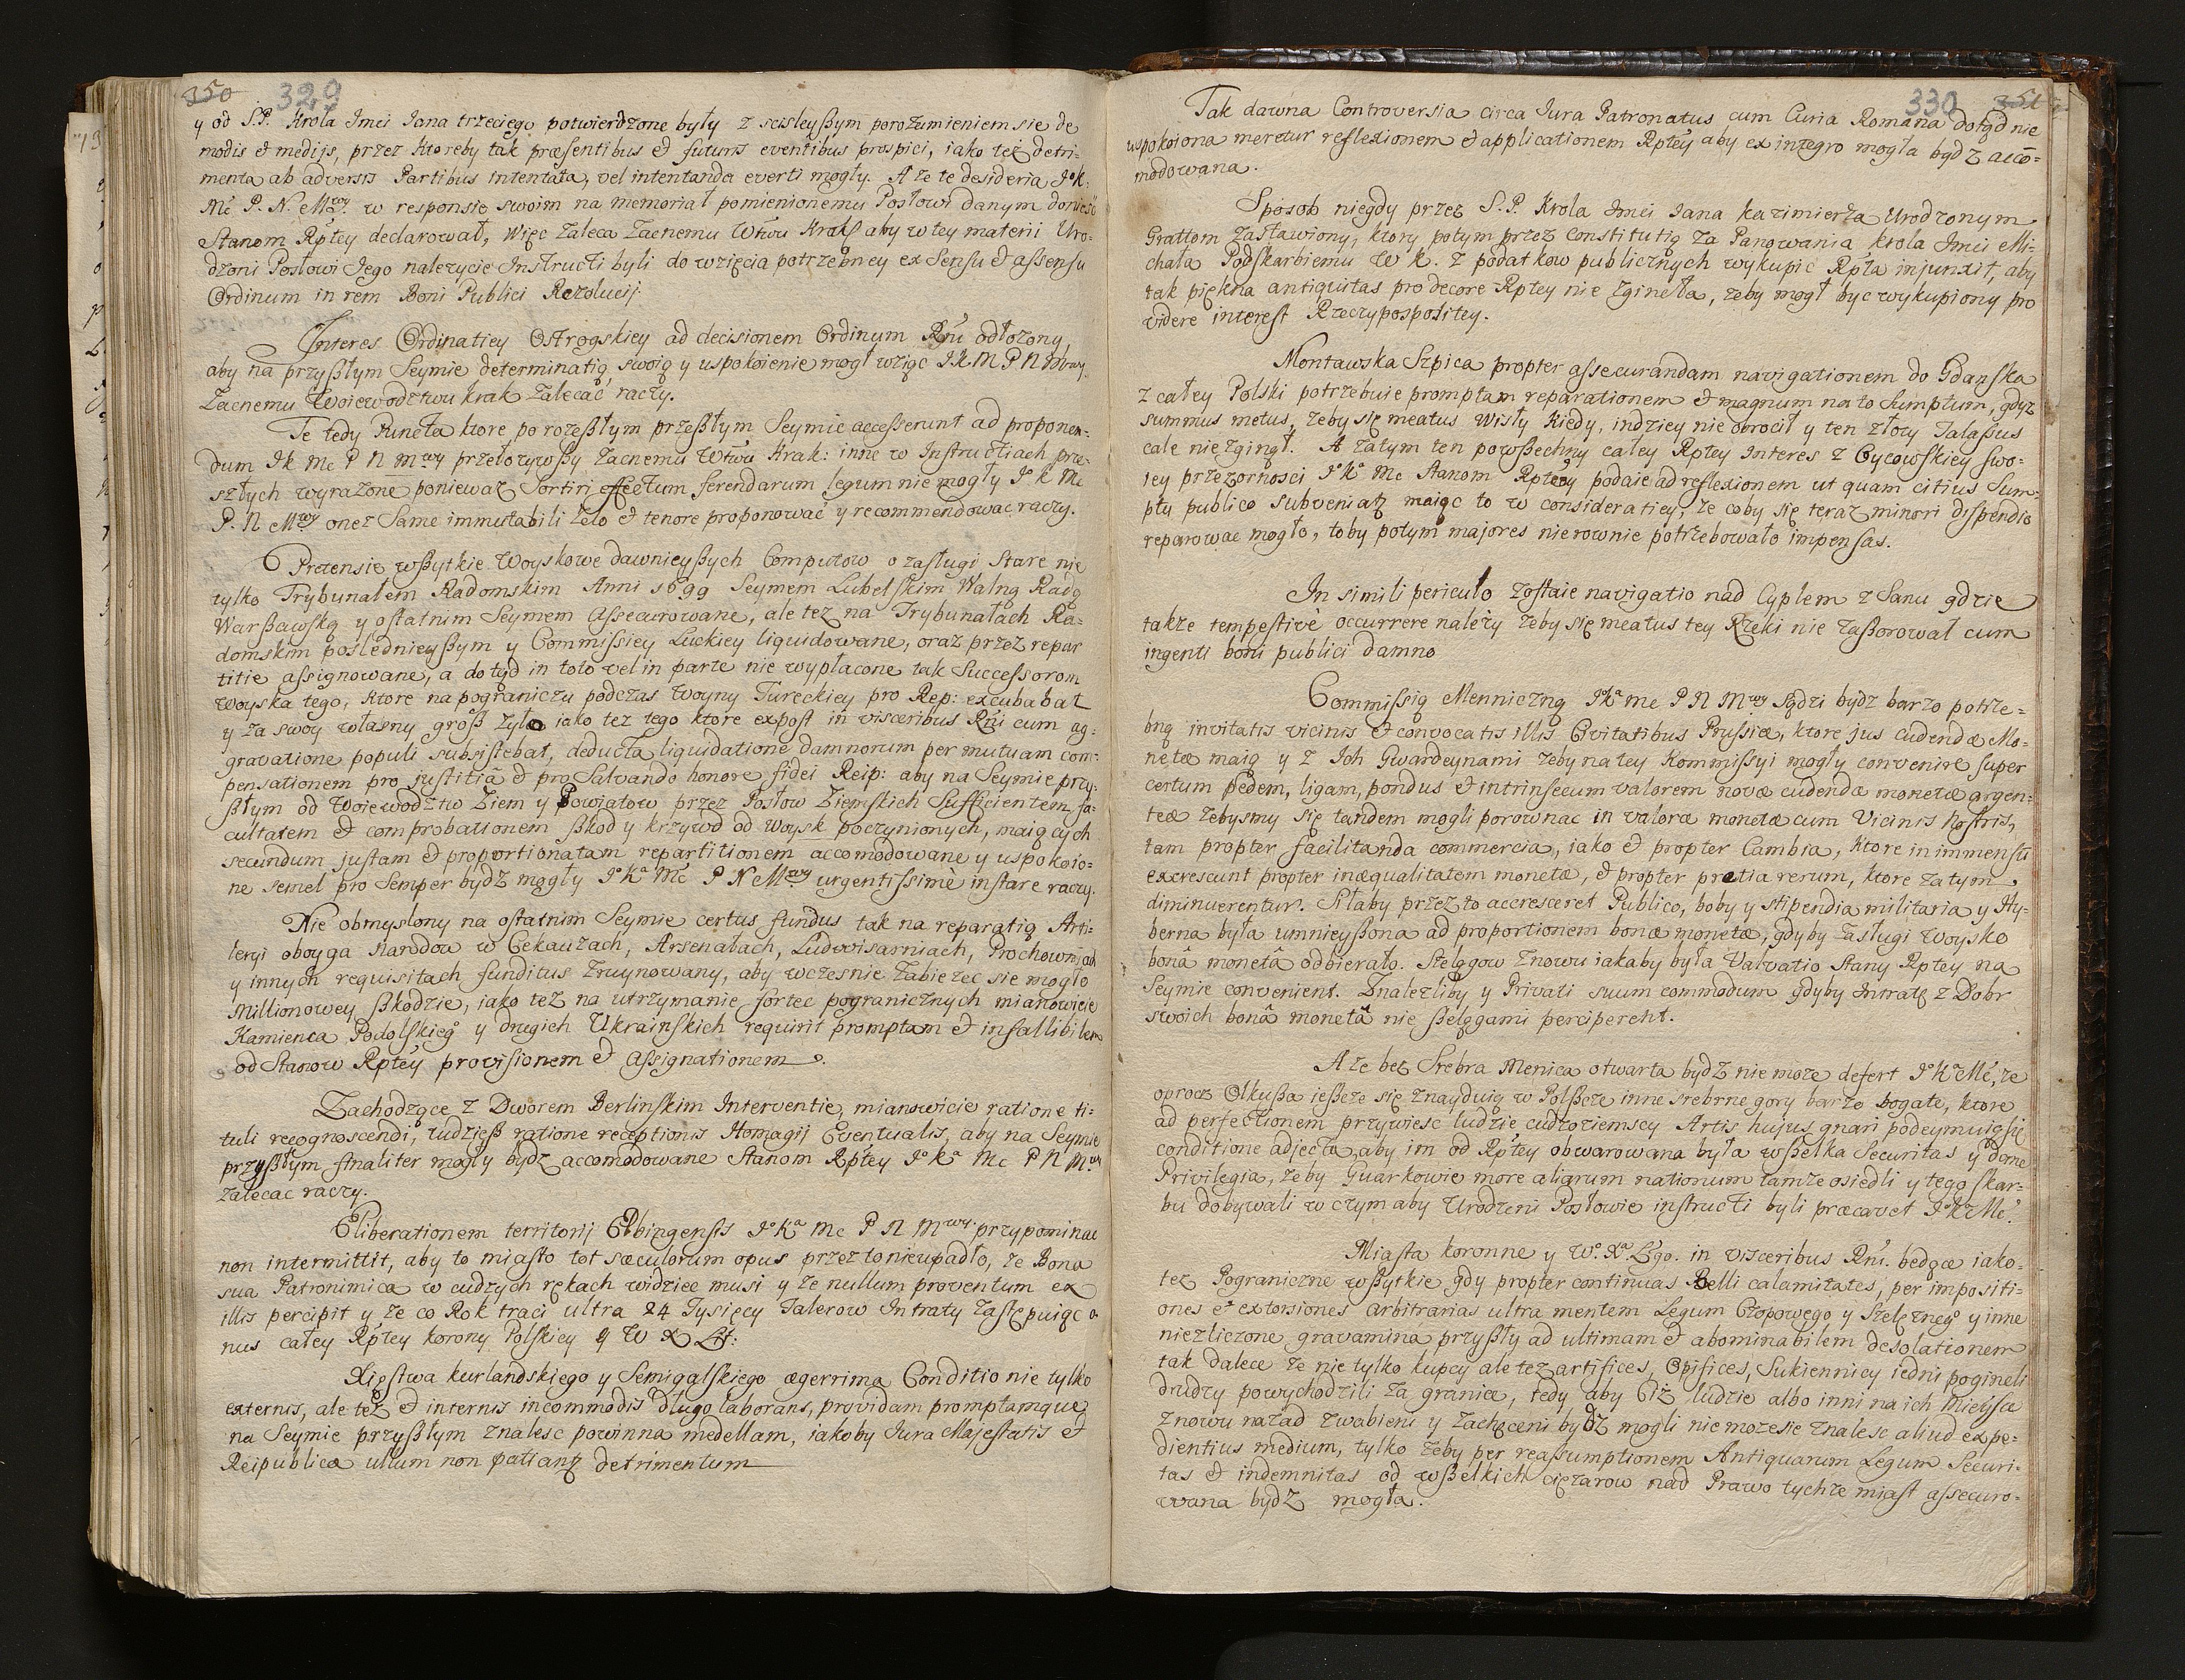 350 329
y od S.P. Krola Jmci Jana trzeciego potwierdzone były z scisleyßym porozumieniem sie de
modis et medijs, przez ktoreby tak præsentibus et futuris eventibus prospici, iako też detri-
menta ab adversis Partibus intentata, vel intentanda everti mogły. A że te desideria J°K.
Mć P. N. Mwy. w responsie swoim na memoriał pomienionemu Posłowi danym donieść
Stanom Rptey declarował, Więc zaleca Zacnemu Wtwu Krak aby w tey materii Uro-
dzoni Posłowi Jego należycie Instructi byli do wzięcia potrzebney ex Sensu et assensu
Ordinum in rem Boni Publici Rezolucij.
Interes Ordinatiey Ostrogskiey ad decisionem Ordinum Rni odłozony,
aby na przyßłym Seymie determinatią swoią y uspokoienie mogł wziąc J K M P N Mwy.
Zacnemu Woiewodztwu Krak zalecać raczy.
Te tedy Puncta ktore po rozeßłym przeßłym Seymie accesserunt ad proponen-
dum Jk Mc P N Mwy przełozywßy Zacnemu Wtwu Krak: inne w Instructiach prze-
szłych wyrazone poniewaz Sortiri effectum ferendarum legum nie mogły J° K Mc
P. N Mwy onez Same immutabili zelo et tenore proponować y recommendowac raczy.
Pretensie wßytkie Woyskowe dawnieyßych Computow o zasługi Stare nie
tylko Trybunałem Radomskim Anni 1699 Seymem Lubelskim Walną Radą
Warßawską y ostatnim Seymem Assecurowane, ale tez na Trybunałach Ra-
domskim poslednieyßym y Commissiey Luckiey liquidowane, oraz przez repar
titie assignowane, a dotyd in toto vel in parte nie wypłacone tak Successorom
Woyska tego, ktore na pograniczu podczas Woyny Tureckiey pro Rep: excubabat
y za swoy własny groß zyło iako tez tego ktore expost in visceribus Rni cum ag-
gravatione populi subsistebat, deducta liquidatione damnorum per mutuam com-
pensationem pro justitiâ et pro Salvando honore fidei Reip: aby na Seymie przy-
ßłym od Woiewodztw Ziem y Powiatow przez Posłow Ziemskich Sufficientem fa-
cultatem et comprobationem ßkod y krzywd od Woysk poczynionych, maiących
secundum justam et proportionatam repartitionem accomodowane y uspokoio-
ne semel pro Semper bydz mogły J°Kª Mć P N Mwy urgentissimè instare raczy.
Nie obmyslony na ostatnim Seymie certus fundus tak na reparatią Arti-
leryi oboyga Narodow w Cekauzach, Arsenałach, Ludwisarniach, Prochowniach
y innych requisitach funditus zruynowany, aby wczesnie zabiezec sie mogło
Millionowey ßkodzie, iako tez na utrzymanie fortec pogranicznych mianowicie
Kamienca Podolskieg° y drugich Ukrainskich requirit promptam et infallibilem
od Stanow Rptey provisionem et assignationem.
Zachodzące z Dworem Berlinskim Interventie, mianowicie ratione ti-
tuli recognoscendi, tudzieß ratione receptionis Homagij Eventualis, aby na Seymie
przyßłym finaliter mogły bydz accomodowane Stanom Rptey J° Kª Mc P N Mwy
zalecac raczy.
Eliberationem territorij Elbingensis J°Kª Mc P N Mwy przypominac
non intermittit, aby to miasto tot sæculorum opus przez to nieupadło, ze Bona
sua Patronimica w cudzych rękach widziec musi y ze nullum proventum ex
illis percipit y ze co Rok traci ultra 24 Tysięcy Talerow Intraty zastępuiąc o
nus całey Rptey Korony Polskiey y W X Lit:
Xięstwa Kurlandskiego y Semigalskiego ægerrima Conditio nie tylko
externis, ale tez et internis incommodis długo laborans, providam promptamque
na Seymie przyßłym znalesc powinna medellam, iakoby Jura Majestatis et
Reipublicæ ullum non patiantz detrimentum
330 351
Tak dawna Controversia circa Jura Patronatus cum Curia Romana dotyd nie
uspokoiona meretur reflexionem et applicationem Rptey aby ex integro mogła bydz acco-
modowana.
Sposob niegdy przez S.P. Krola Jmci Jana Kazimierza Urodzonym
Grattom zastawiony, ktory potym przez Constitutią za Panowania Krola Jmci Mi-
chała Podskarbiemu W K. z podatkow publicznych wykupic Rpta injunxit, aby
tak piękna antiquitas pro decore Rptey nie zgineła, zeby mogł byc wykupiony pro
videre interest Rzeczypospolitey.
Montawska Szpica propter assecurandam navigationem do Gdanska
z całey Polski potrzebuie promptam reparationem et magnum na to Sumptum, gdyz
summus metus, zeby się meatus Wisły kiedy, indziey nie obrocił y ten złoty Talassus
cale nie zginął. A zatym ten powßechny całey Rptey Interes z Oycowskiey swo-
iey przezornosci J°Kª Mc Stanom Rptey podaie ad reflexionem ut quam citius Sum-
ptu publico subveniatz maiąc to w consideratiey, ze coby się teraz minori dispendio
reparowac mogło, toby potym majores nierownie potrzebowało impensas.
In simili periculo zostaie navigatio nad Cyplem z Sanu gdzie
takze tempestivè occurrere nalezy zeby się meatus tey Rzeki nie zaßorował cum
ingenti boni publici damno
Commissią Menniczną J°Kª Mc P N Mwy sądzi bydz barzo potrze-
bną invitatis vicinis et convocatis illis Civitatibus Prussiæ, ktore jus cudendæ Mo-
netæ maią y z Ich Gwardeynami zeby na tey Kommissyi mogły convenire super
certum pedem, ligam, pondus et intrinsecum valorem novæ cudendæ monetæ argen-
teæ zebysmy się tandem mogli porownac in valore monetæ cum Vicinis nostris,
tam propter facilitanda commercia, iako et propter Cambia, ktore in immensu
excrescunt propter inæqualitatem monetæ, et propter pretia rerum, ktore zatym
diminuerentur. Siłaby przez to accresceret Publico, boby y stipendia militaria y Hy-
berna była umnieyßona ad proportionem bonæ monetæ, gdyby zasługi Woysko
bonâ monetâ odbierało. Szelągow znowu iakaby była Valvatio Stany Rptey na
Seymie convenient. Znalezliby y Privati suum commodum gdyby Intratę z Dobr
swoich bonâ monetâ nie ßelągami perciperent.
A ze bez Srebra Menica otwarta bydz nie moze defert J°KªMć, ze
oprocz Olkußa ießcze się znayduią w Polßcze inne srebrne gory barzo bogate, ktore
ad perfectionem przywiesc ludzie cudzoziemscy Artis hujus gnari podeymuią się
conditione adjecta, aby im od Rptey obwarowana była wßelka Securitas y dane
Privilegia, zeby Guarkowie more aliarum nationum tamze osiedli y tego skar-
bu dobywali w czym aby Urodzeni Posłowie instructi byli præcavet J°KªMć.
Miasta koronne y W°. Xª. Lgo. in visceribus Rni. bedące iako-
tez Pograniczne wßytkie gdy propter continuas Belli calamitates, per impositi-
ones et extorsiones arbitrarias ultra mentem Legum Czopowego y Szelęzneg° y inne
niezliczone gravamina przyßły ad ultimam et abominabilem desolationem
tak dalece ze nie tylko kupcy ale tez artifices, Opifices, Sukiennicy iedni pogineli
drudzy powychodzili za granicę, tedy aby Ciż ludzie albo inni na ich mieysca
znowu nazad zwabieni y zachęceni bydz mogli nie moze sie znalesc aliud expe-
dientius medium, tylko zeby per reassumptionem Antiquarum Legum Securi-
tas et indemnitas od wßelkich cięzarow nad Prawo tychze miast assecuro-
wana bydz mogła.